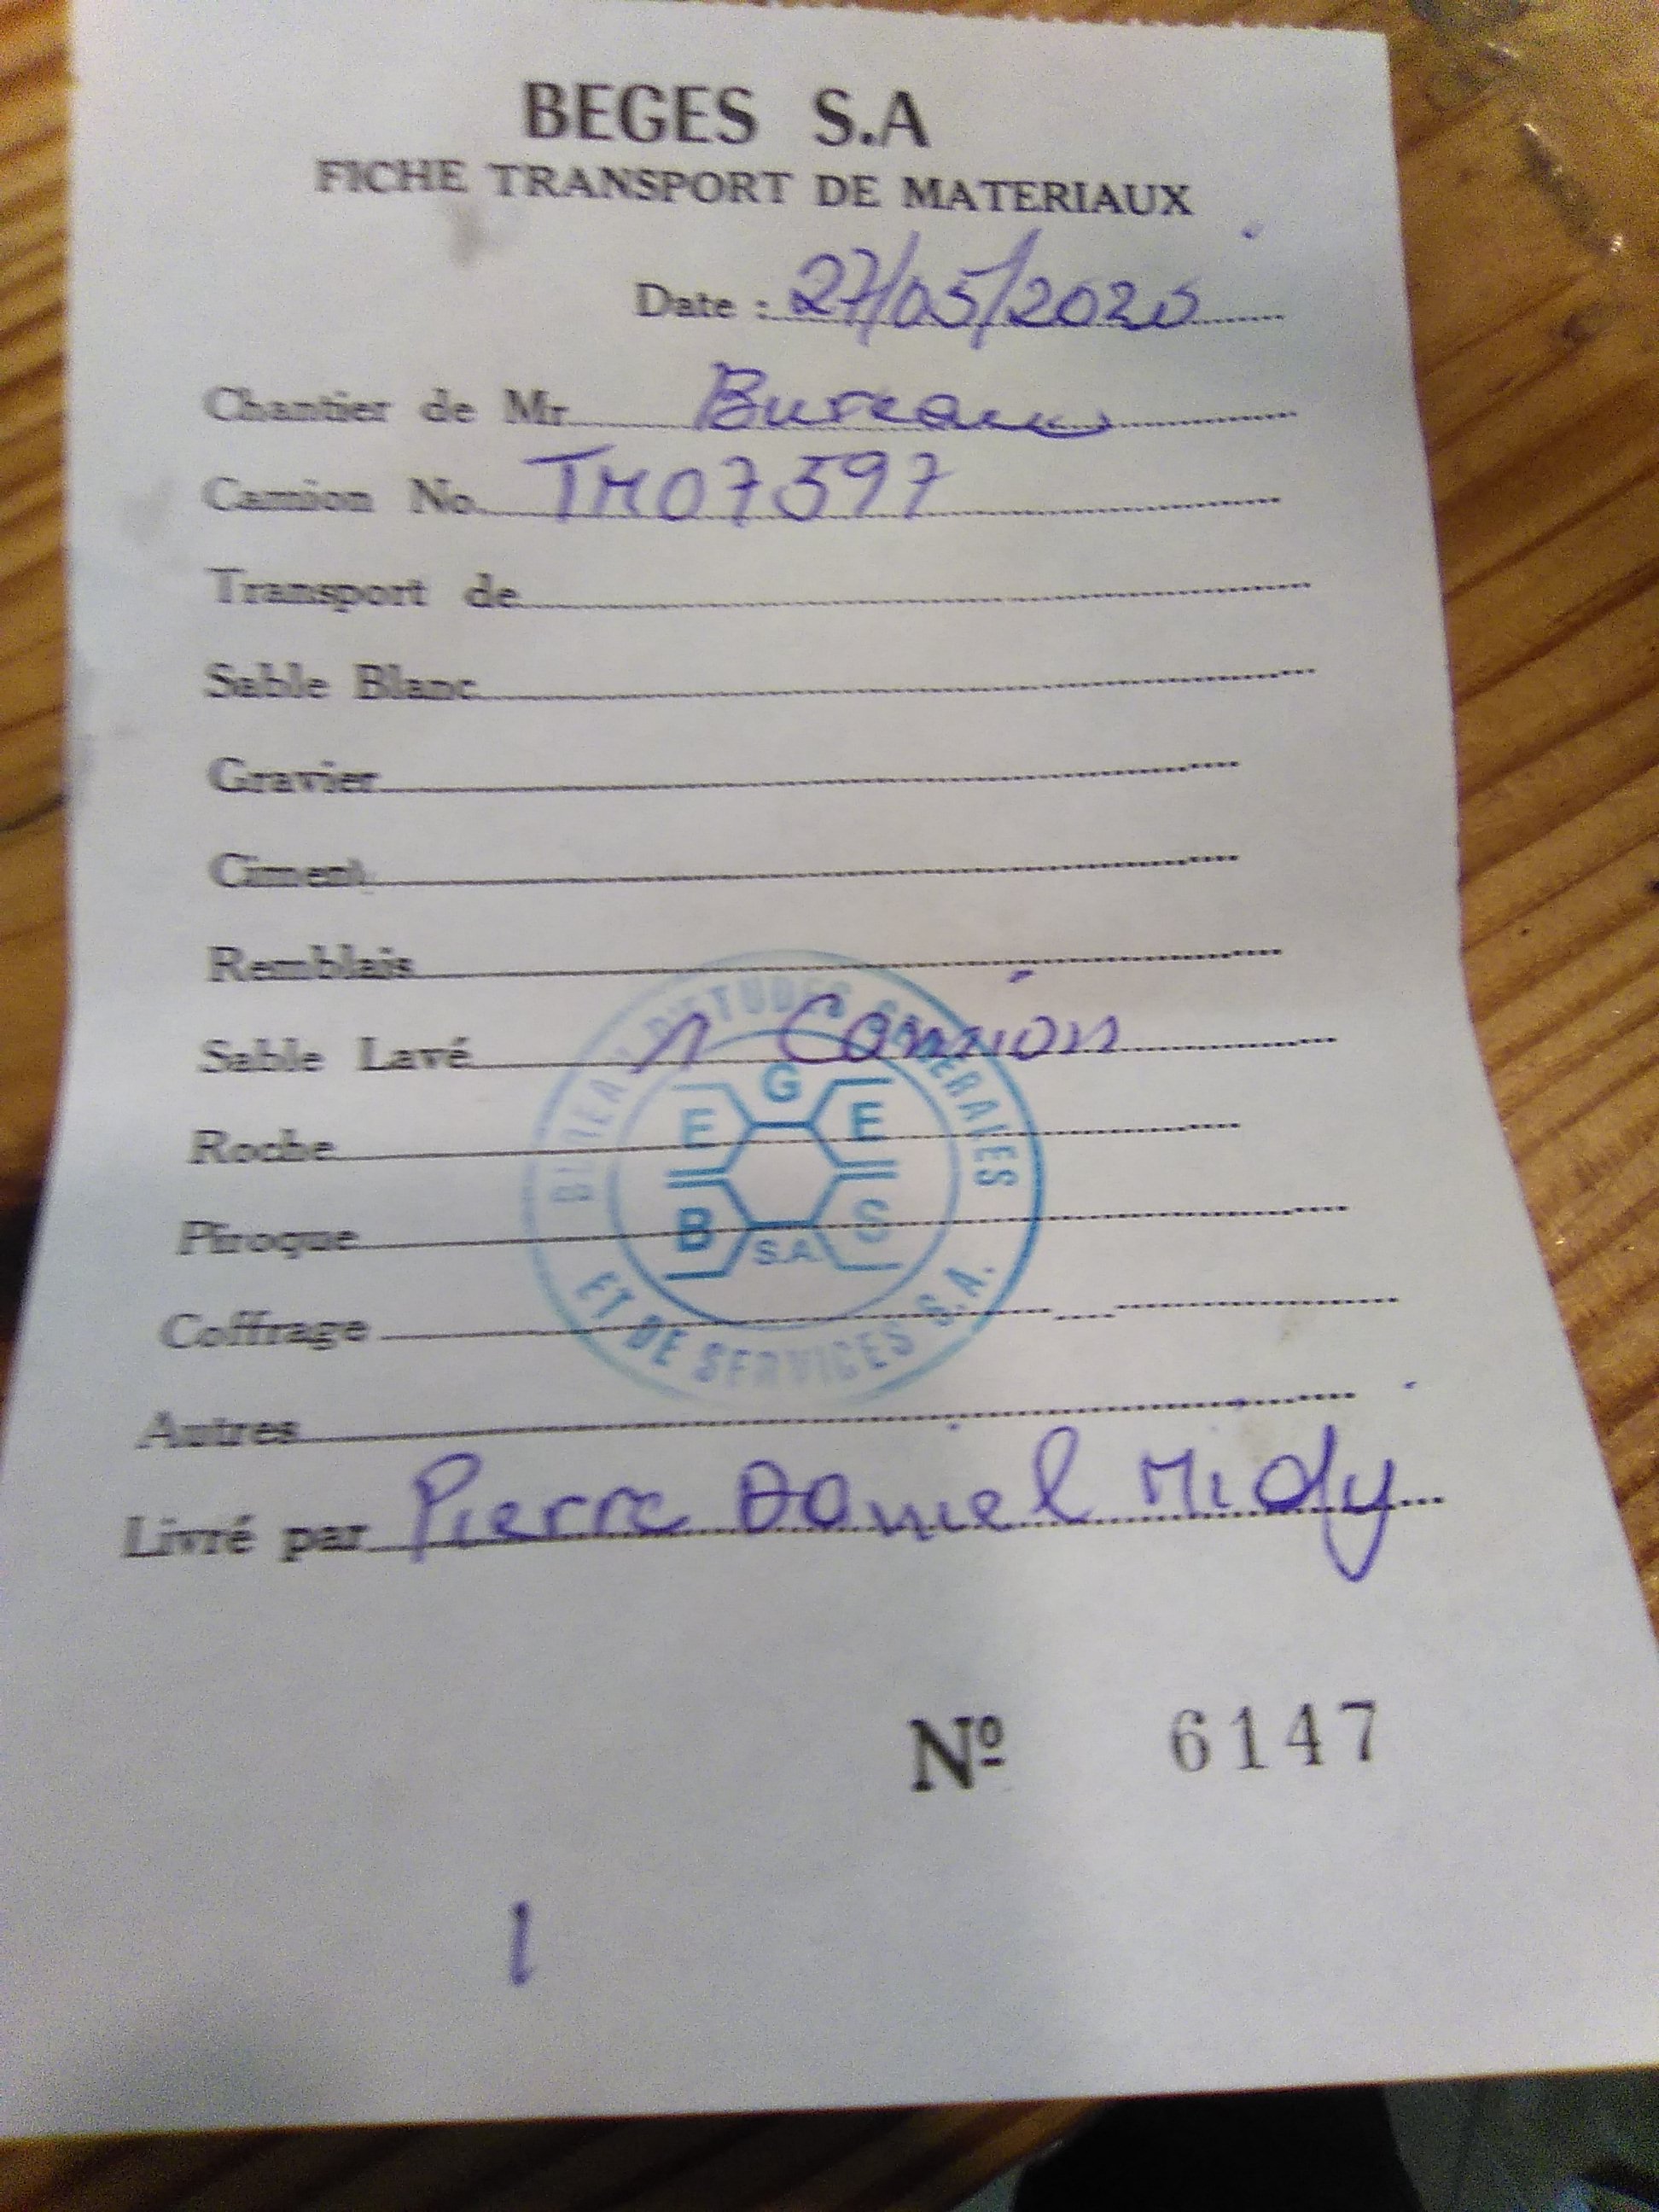 BEGES S.A
FICHE TRANSPORT DE MATERIAUX
Date : 27/05/2025
Chantier de Mr Bureau
Camion No TM07597
Transport de
Sable Blanc
Gravier
Ciment
Remblais
Sable Lavé 1 Camion
Roche
Piroque
Coffrage
Autres
Livré par Pierre Daniel Midy
BUREAU D'ETUDES GENERALES
G
E E
B S
S.A
ET DE SERVICES S.A.
Nº 6147
1